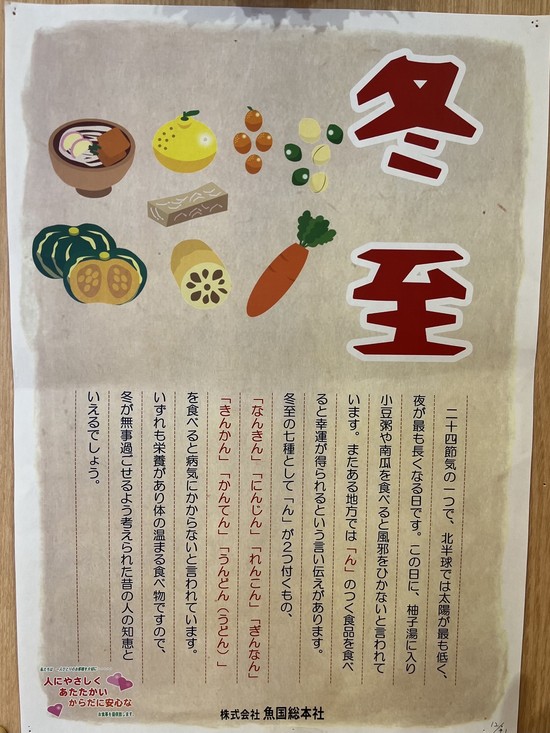 冬至
二十四節気の一つで、北半球では太陽が最も低く、
夜が最も長くなる日です。この日に、柚子湯に入り
小豆粥や南瓜を食べると風邪をひかないと言われて
います。またある地方では「ん」のつく食品を食べ
ると幸運が得られるという言い伝えがあります。
冬至の七種として「ん」が2つ付くもの、
「なんきん」「にんじん」「れんこん」「ぎんなん」
「きんかん」「かんてん」「うんどん（うどん）」
を食べると病気にかからないと言われています。
いずれも栄養があり体の温まる食べ物ですので、
冬が無事過ごせるよう考えられた昔の人の知恵と
いえるでしょう。
人にやさしく
あたたかい
からだに安心な
お食事を提供致します
株式会社 魚国総本社